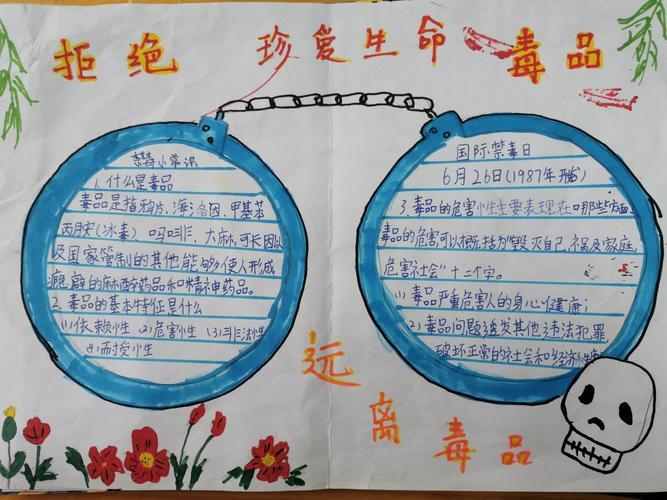 拒绝 珍爱生命 毒品
禁毒小常识
1.什么是毒品
毒品是指鸦片、海洛因、甲基苯
丙胺(冰毒)、吗啡、大麻,可卡因以
及国家管制的其他能够使人形成
瘾癖的麻醉药品和精神药品。
2.毒品的基本特征是什么
(1)依赖性 (2)危害性 (3)非法性
(4)耐受性
国际禁毒日
6月26日(1987年开始)
3.毒品的危害性主要表现在哪些方面
毒品的危害可以概括为"毁灭自己,祸及家庭,
危害社会"十二个字。
(1)毒品严重危害人的身心健康;
2)毒品问题诱发其他违法犯罪
破坏正常的社会和经济
远离毒品